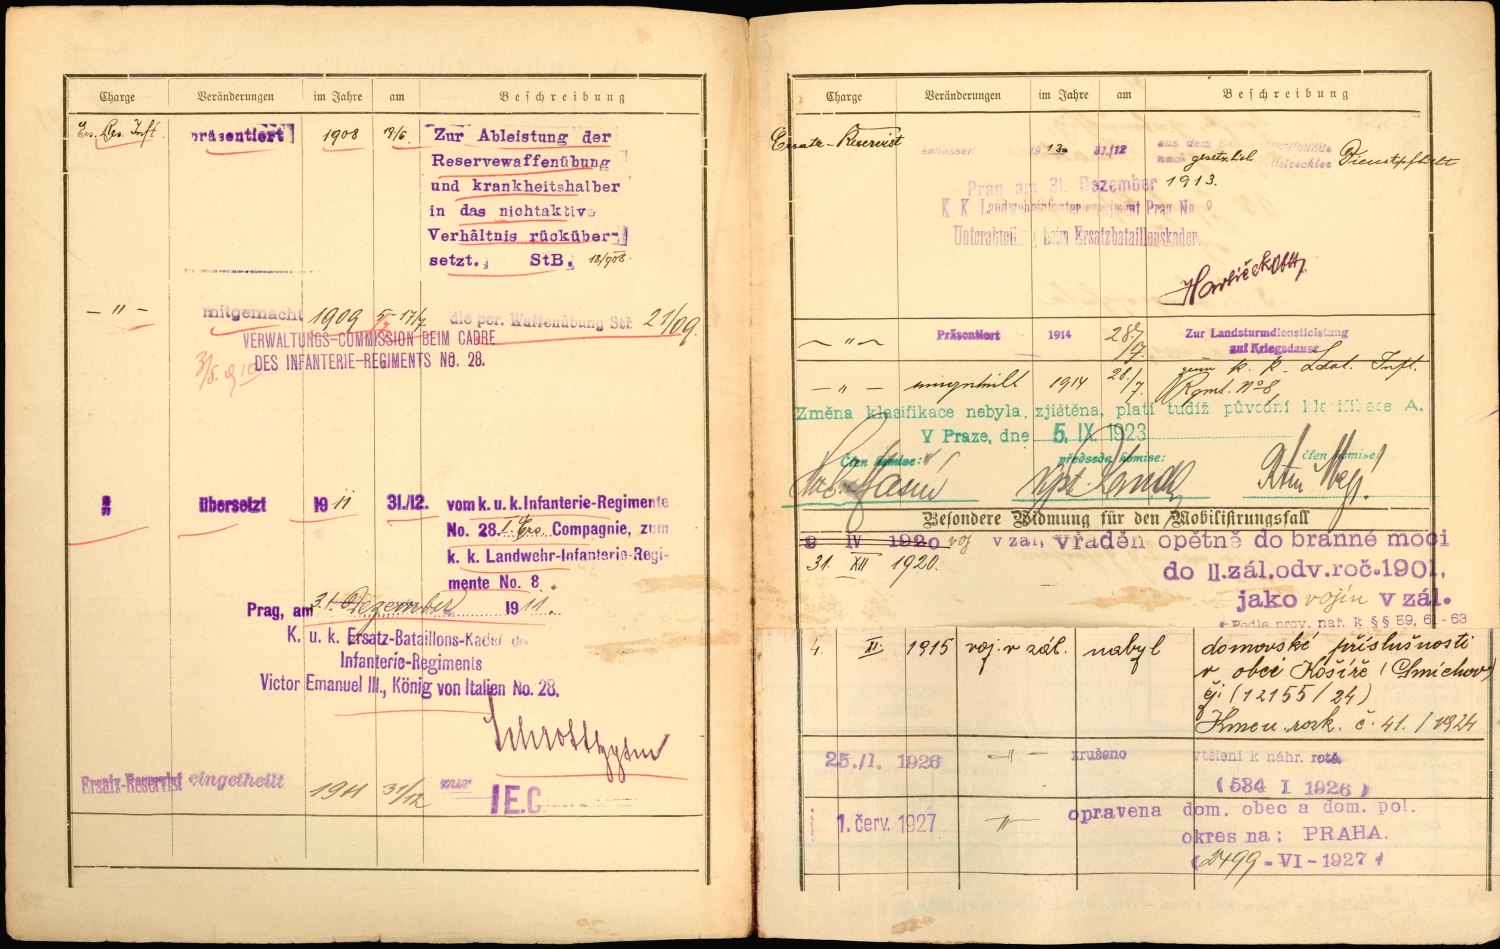 Charge Veränderungen im Jahre am Beschreibung
Ers. Res. Inft. präsentiert 1908 13/6. Zur Ableistung der
Reservewaffenübung
und krankheitshalber
in das nichtaktive
Verhältnis rücküber-
setzt. StB. 18/908.
— " — mitgemacht 1909 17/7 die per. Waffenübung StB 21/09.
VERWALTUNGS-COMMISSION BEIM CADRE
DES INFANTERIE-REGIMENTS No. 28.
übersetzt 1911 31./12. vom k. u. k. Infanterie-Regimente
No. 28. Compagnie, zum
k. k. Landwehr-Infanterie-Regi-
mente No. 8.
Prag, am 31. Dezember 1911.
K. u. k. Ersatz-Bataillons-Kader des
Infanterie-Regiments
Victor Emanuel III., König von Italien No. 28.
Ersatz-Reservist eingetheilt 1911 31/12 zur I E.C.
Charge Veränderungen im Jahre am Beschreibung
Ersatz-Reservist entlassen 1913 31/12 aus dem
nach gesetzlich Dienstpflicht
Prag am 31. Dezember 1913.
K K Landwehrinfanterieregiment Prag No. 8
Unterabteil beim Ersatzbataillonskader.
— " — Präsentiert 1914 28./7. Zur Landsturmdienstleistung
auf Kriegsdauer
— " — eingeteilt 1914 28./7. zum k. k. Ldst. Inft.
Rgmt. No 8,
Změna klasifikace nebyla zjištěna, platí tudíž původní klasifikace A.
V Praze, dne 5. IX. 1923
Člen komise: předseda komise: člen komise:
Besondere Widmung für den Mobilisirungsfall
9 IV 1920 voj v zál, vřaděn opětně do branné moci
31. XII 1920. do II.zál.odv.roč.1901,
jako vojín v zál.
Podle prov. nař. k §§ 59, 61-63
4. XI. 1915 voj. v zál. nabyl domovské příslušnosti
v obci Košíře (Smíchov)
čj: (12155/24)
Kmen. rozk. č. 41./1924
25./I. 1926 — " — zrušeno vtělení k náhr. rotě
(534 I 1926)
1. červ. 1927 — " — opravena dom. obec a dom. pol.
okres na: PRAHA.
(2499-VI-1927)